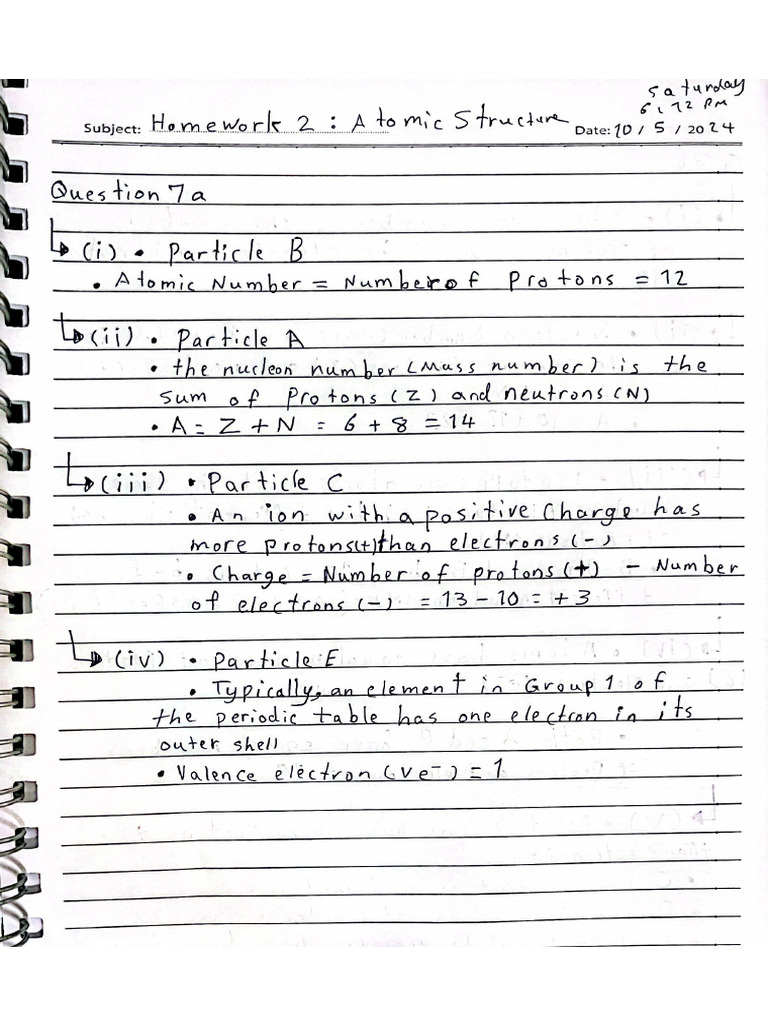 Saturday
6:12 PM
Subject: Homework 2 : Atomic Structure Date: 10 / 5 / 2024
Question 7a
(i) • Particle B
• Atomic Number = Number of Protons = 12
(ii) • Particle A
• the nucleon number (Mass number) is the
sum of Protons (Z) and neutrons (N)
• A = Z + N = 6 + 8 = 14
(iii) • Particle C
• An ion with a positive Charge has
more protons(+) than electrons (-)
• Charge = Number of protons (+) - Number
of electrons (-) = 13 - 10 = +3
(iv) • Particle E
• Typically, an element in Group 1 of
the periodic table has one electron in its
outer shell
• Valence electron (ve-) = 1